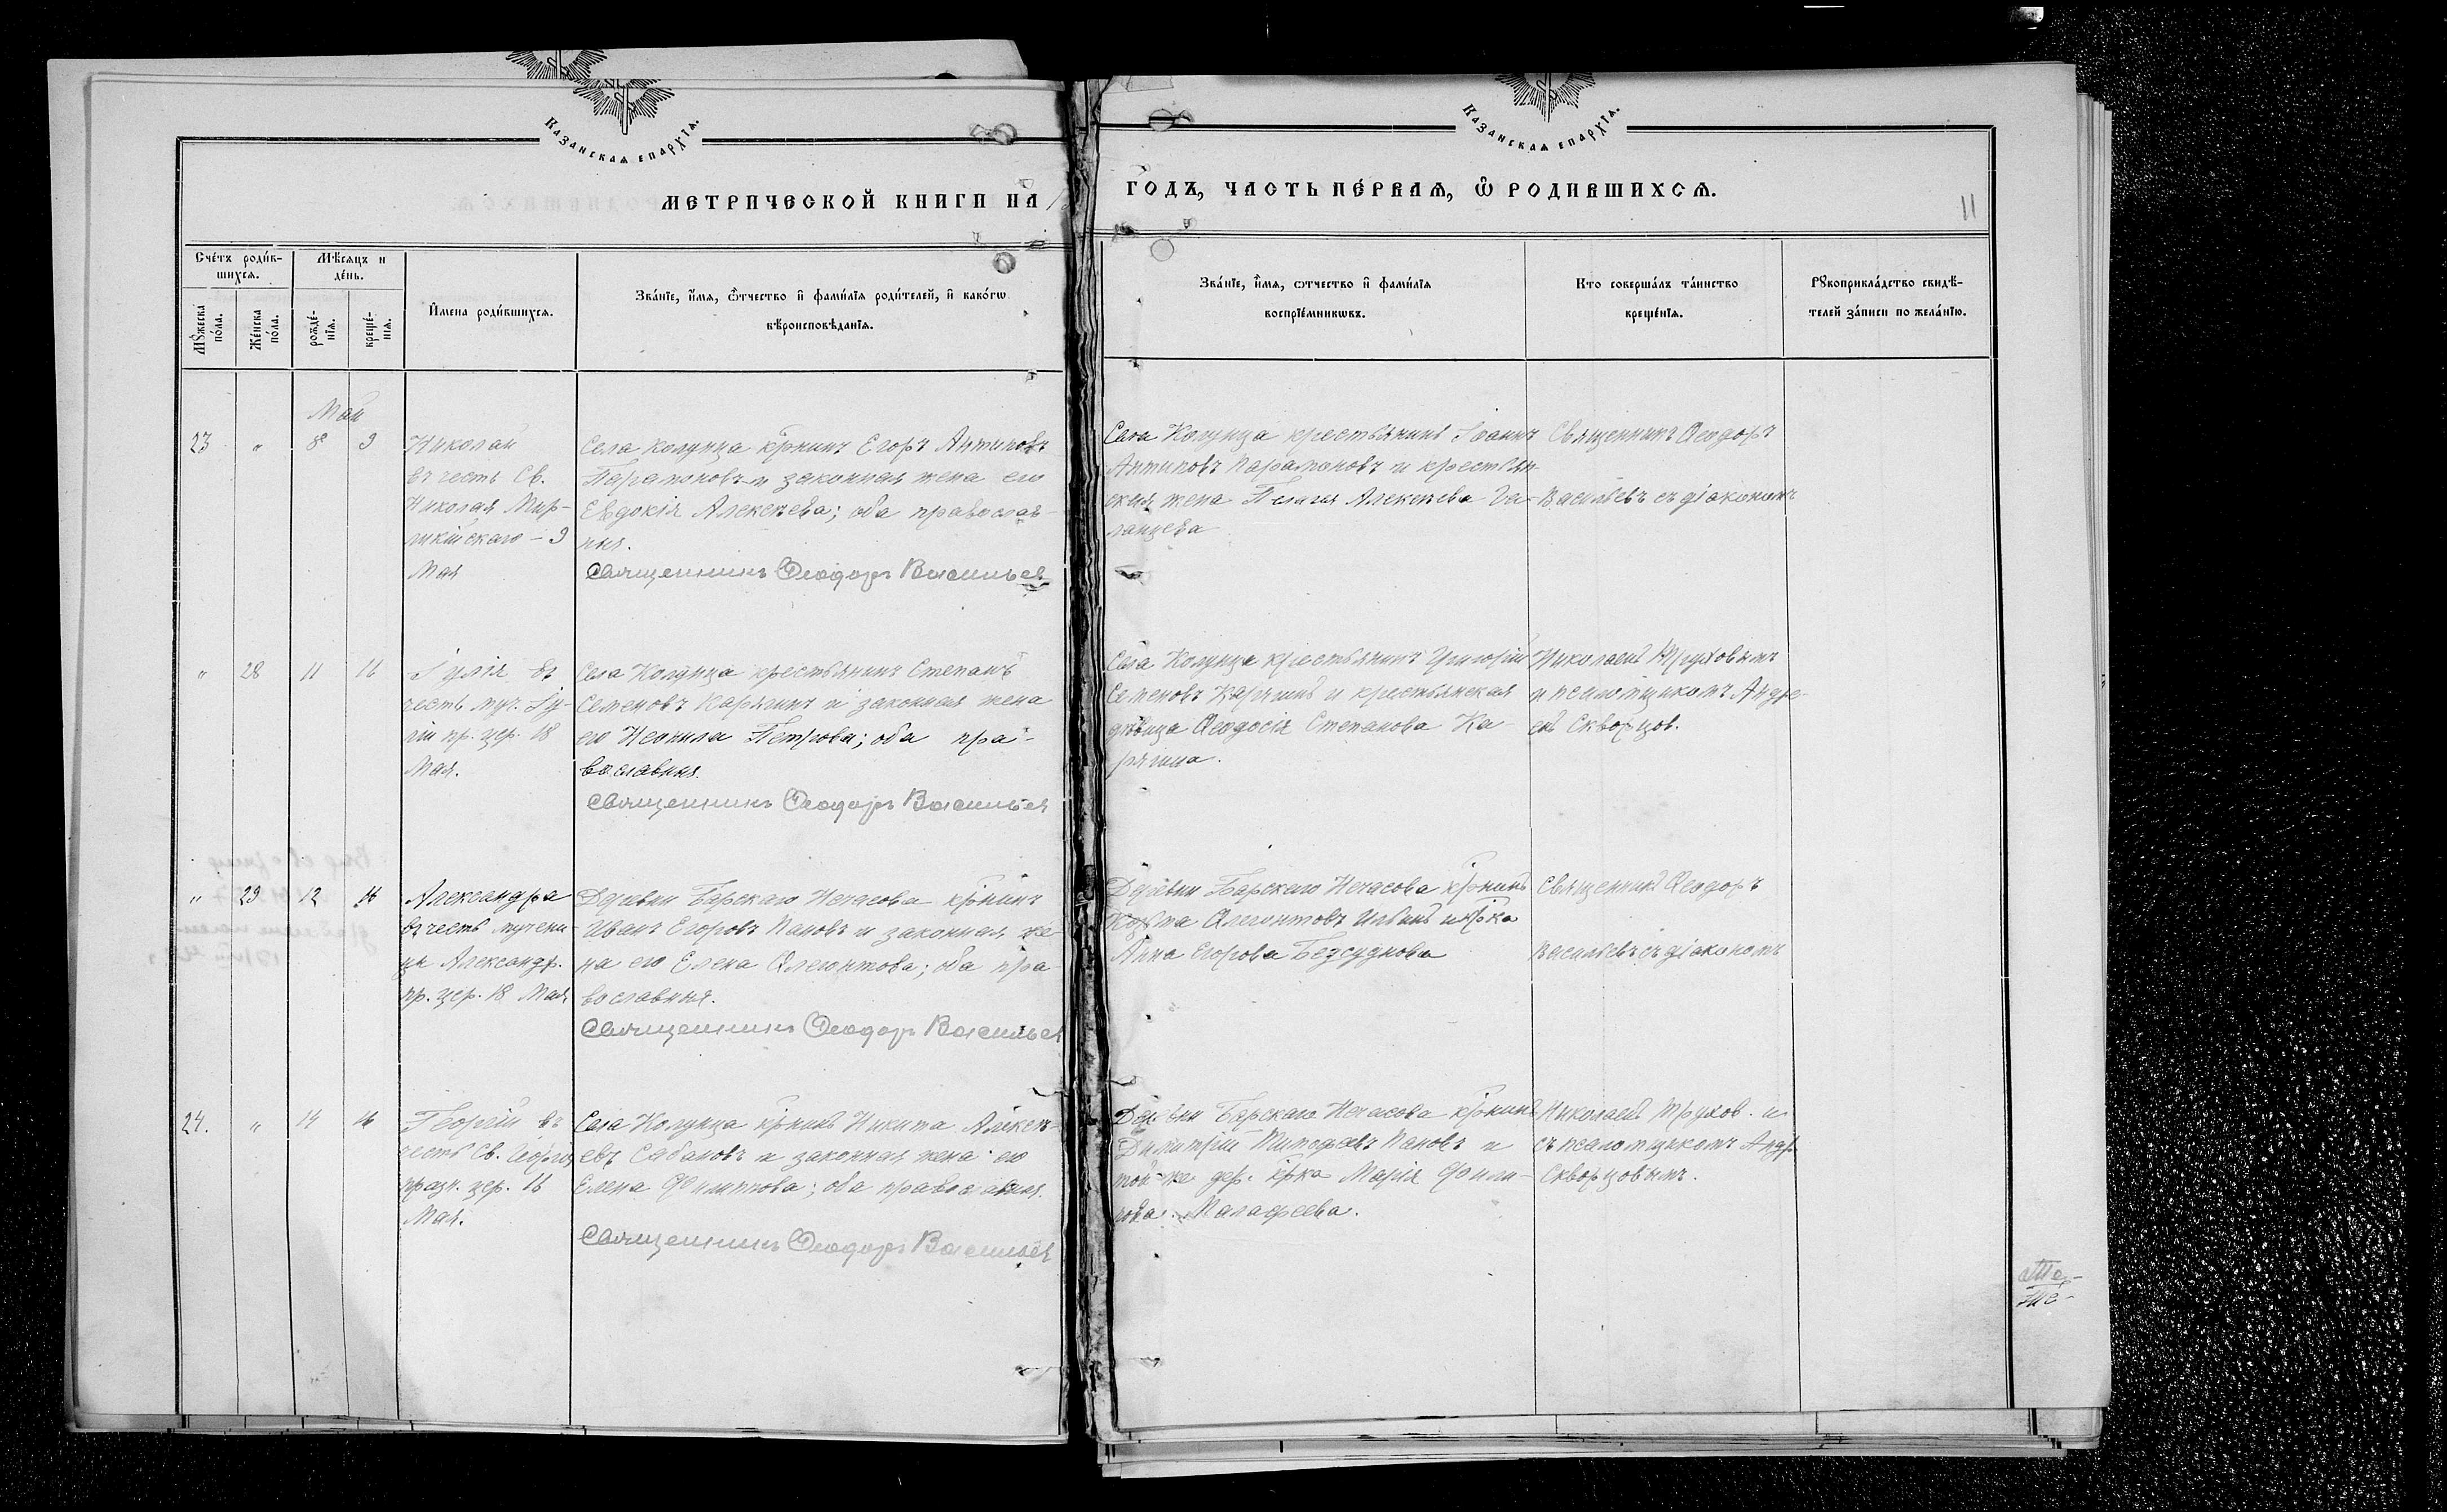 Казанскаѧ епархїѧ.
Казанскаѧ епархїѧ.
МЕТРИЧЕСКОЙ КНИГИ НА
ГОДЪ, ЧАСТЬ ПЕ́РВАѦ, Ѽ РОДИВШИХСѦ.
11
Сче́тъ роди́в-
шихсѧ.
Мѣ́сѧцъ и
де́нь.
Мꙋ́жеска
по́ла.
Же́нска
по́ла.
рожде́-
нїѧ.
креще́-
нїѧ.
И҆мена роди́вшихсѧ.
Зва́нїе, и҆́мѧ, ѻ҆́тчество и҆ фами́лїѧ роди́телей, и҆ како́гѡ
вѣроисповѣ́данїѧ.
Зва́нїе, и҆́мѧ, ѻтчество и҆ фами́лїѧ
воспрїе́мникѡвъ.
Кто соверша́лъ та́инство
креще́нїѧ.
Рꙋкоприкла́дство свидѣ́-
телей за́писи по жела́нїю.
Май
23 " 8 9
Николай
въ честь Св.
Николая Мир-
ликійскаго - 9
Мая
Села Колунца кр-нинъ Егоръ Антиповъ
Парамоновъ и законная жена его
Евдокія Алексѣева; оба православ-
ныя.
Священникъ Ѳеодоръ Васильев
Села Колунца крестьянинъ Іоаннъ
Антиповъ Парамоновъ и крестьян-
ская жена Пелагія Алексѣева Га-
ланцева
Священникъ Ѳеодоръ
Васильевъ съ діакономъ
" 28 11 16
Іулія въ
честь муч. Іу-
ліи пр. цер. 18
Мая.
Села Колунца крестьянинъ Степанъ
Семеновъ Карягинъ и законная жена
его Неонила Петрова; оба пра-
вославныя.
Священникъ Ѳеодоръ Васильев
Села Колунца крестьянинъ Григорій
Семеновъ Карягинъ и крестьянская
дѣвица Ѳеодосія Степанова Ка-
рягина.
Николаемъ Труховымъ
и псаломщикомъ Андре-
емъ Скворцов.
" 29 12 16
Александра
въ честь мучени-
цы Александр.
пр. цер. 18 Мая
Деревни Барскаго Ненасова кр-нинъ
Иванъ Егоровъ Пановъ и законная же-
на его Елена Ѳлегонтова; оба пра
вославныя.
Священникъ Ѳеодоръ Васильев
Деревни Барскаго Ненасова кр-нинъ
Козьма Ѳлегонтовъ Ильинъ и кр-ка
Анна Егорова Безсуднова
Священникъ Ѳеодоръ
Васильевъ съ діакономъ
24. " 14 16
Георгій въ
честь Св. Георгія
празн. цер. 16
Мая.
Села Колунца кр-нинъ Никита Алексѣ-
евъ Сабановъ и законная жена его
Елена Филиппова; оба православныя.
Священникъ Ѳеодоръ Васильев
Деревни Барскаго Ненасова кр-нинъ
Димитрій Тимофеевъ Пановъ и
той-же дер. кр-ка Марія Фили-
пова Малафеева.
Николаемъ Трухов. и
съ псаломщикомъ Андр.
Скворцовымъ.